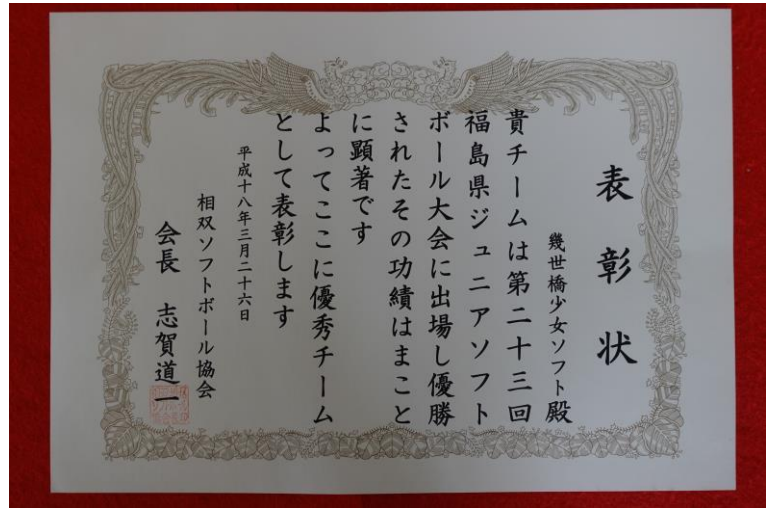 表彰状
幾世橋少女ソフト殿
貴チームは第二十三回
福島県ジュニアソフト
ボール大会に出場し優勝
されたその功績はまこと
に顕著です
よってここに優秀チーム
として表彰します
平成十八年三月二十六日
相双ソフトボール協会
会長 志賀道一